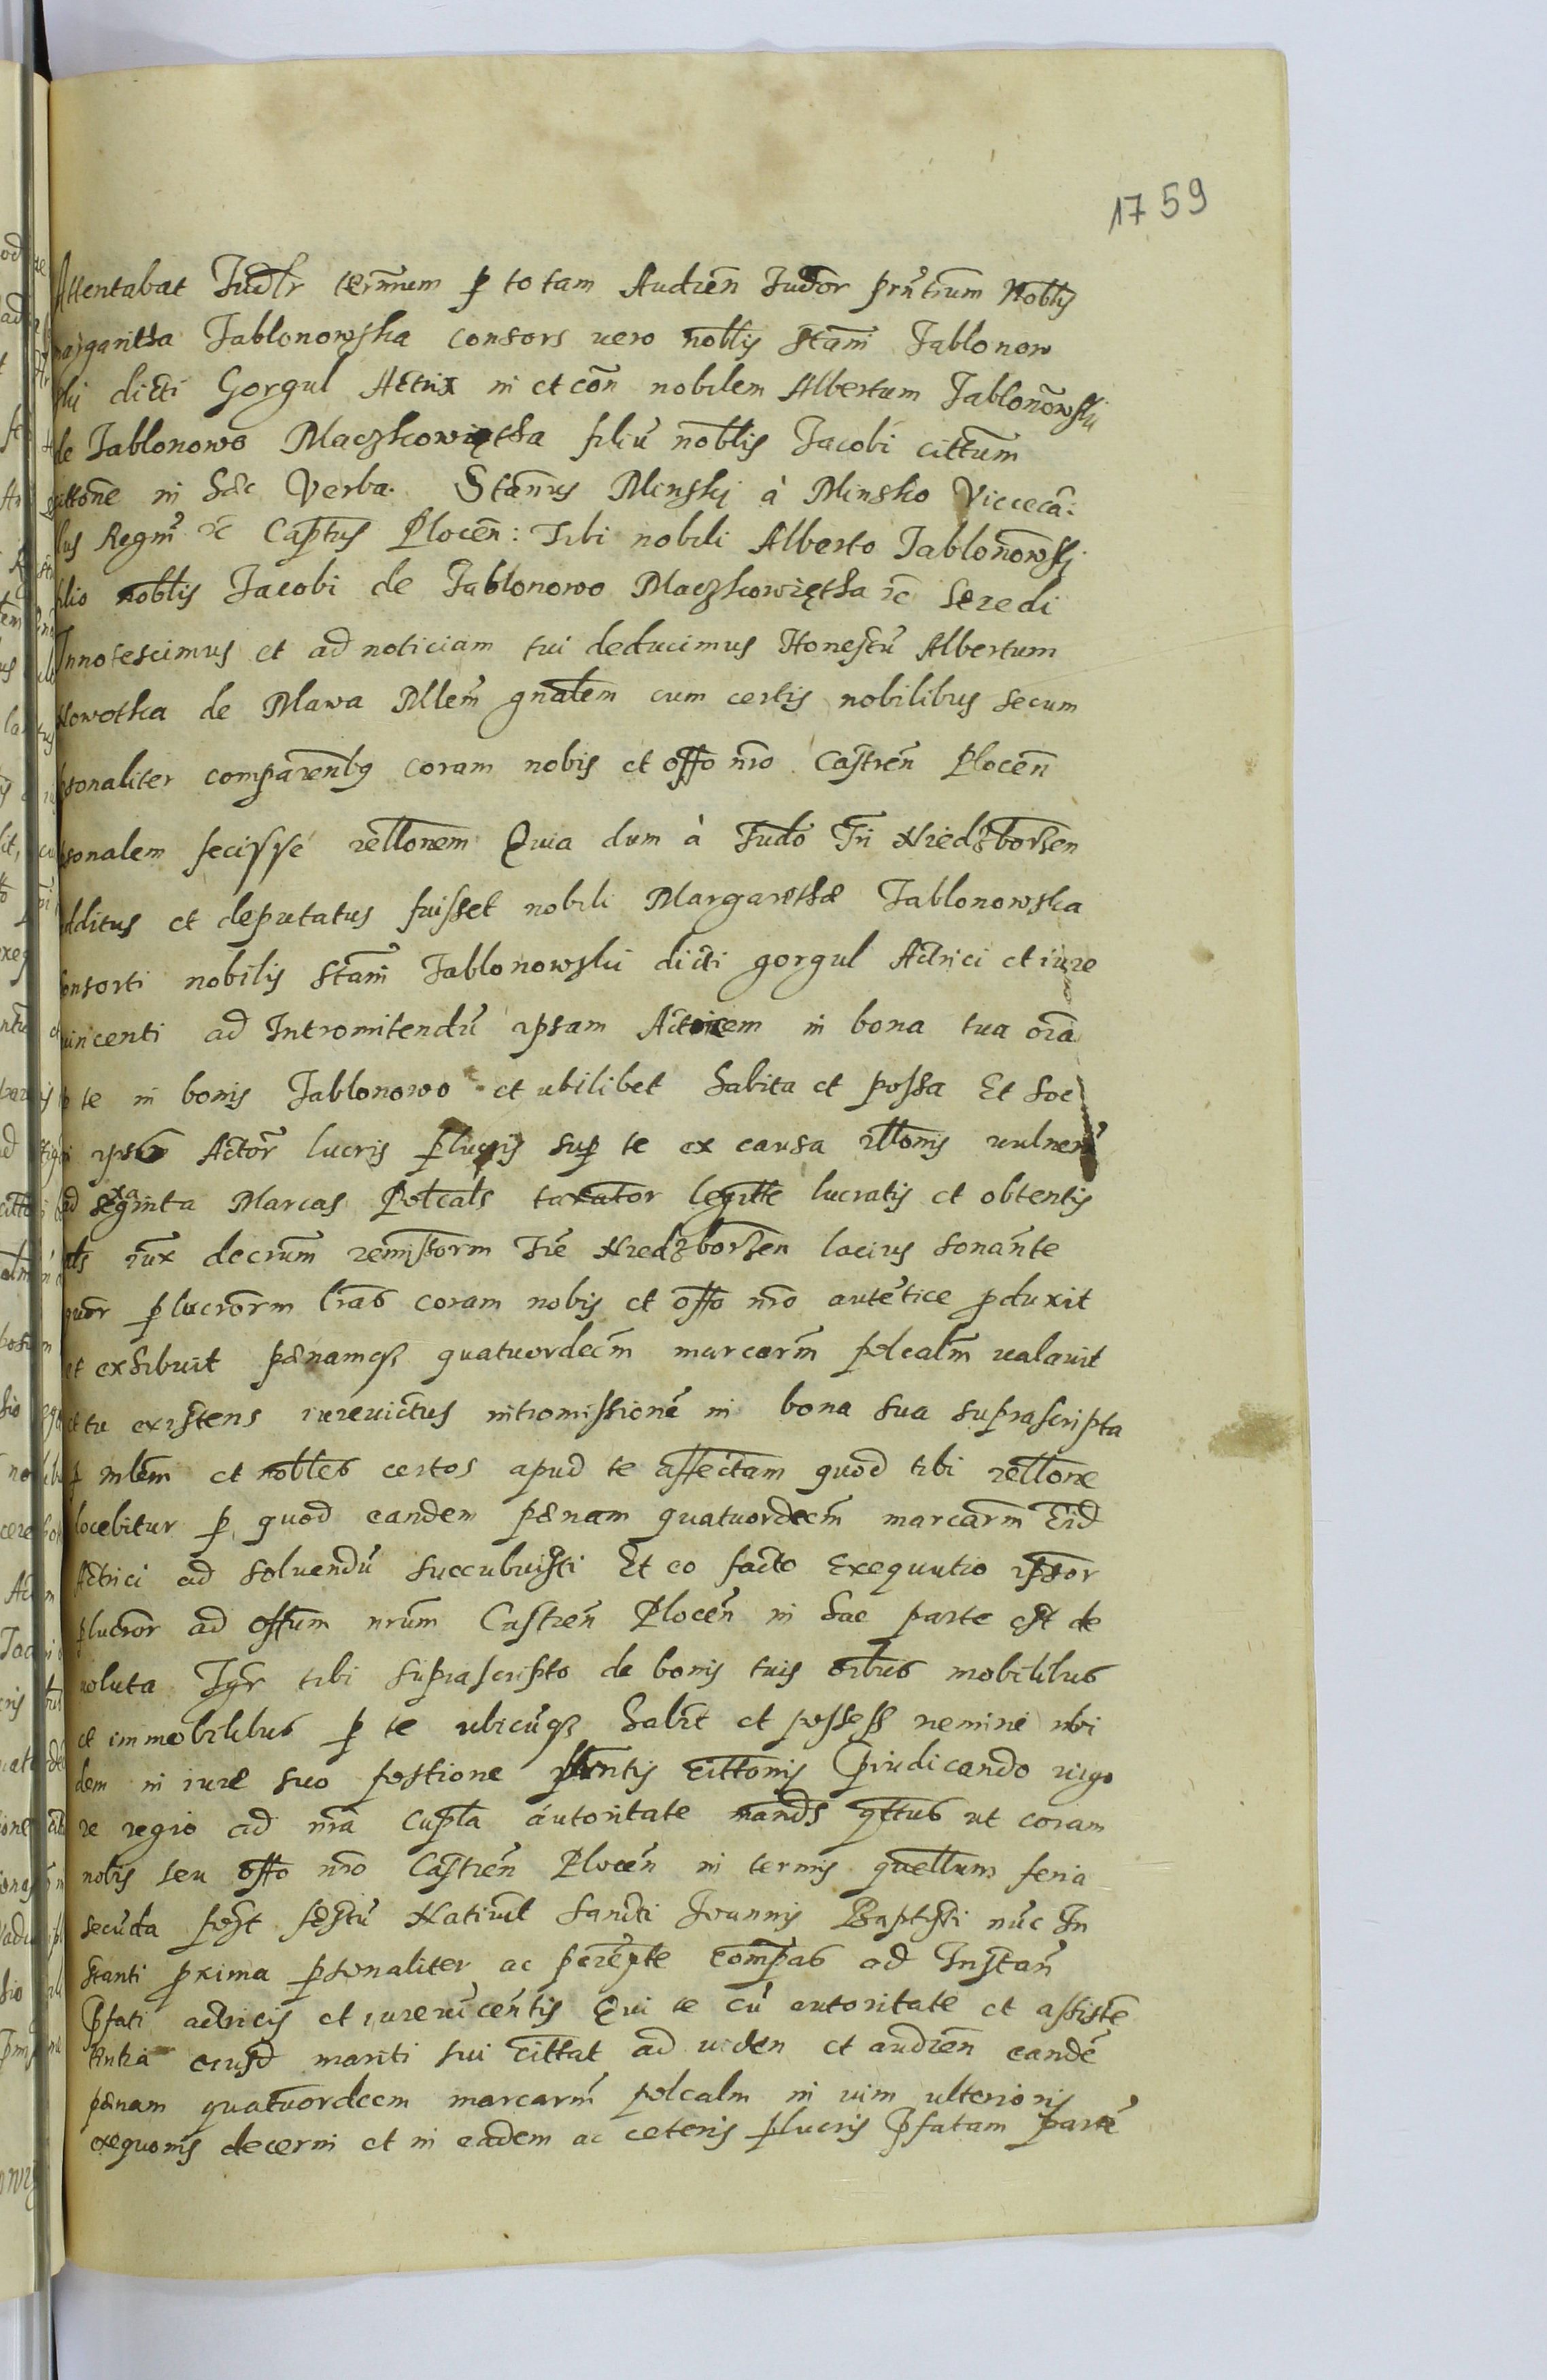 1759
Attentabat Iudlr termnum p totam Audien Iudor prntium Noblis
margaretha Jablonowska consors vero noblis Stani Jablonow
ski dicti Gorgul Actrix in et con nobilem Albertum Jablonowski
de Jablonowo Maczkowiętha filiu noblis Jacobi cittum
cittone in hæc Verba. Stanus Minskj à Minsko Vicecā:
lus Regni etc Captus Plocen: Tibi nobili Alberto Jablonowskj
filio noblis Jacobi de Jablonowo Maczkowiętha etc heredi
Innotescimus et ad noticiam tui deducimus Honestu Albertum
Nowotka de Mlawa Mllem gnalem cum certis nobilibus secum
psonaliter comparentibq coram nobis et offo nro Castren Plocen
psonalem fecisse rellonem Quia dum à Iudo Tri Niedzborsen
additus et deputatus fuisset nobili Margarethæ Jablonowska
consorti nobilis Stani Jablonowski dicti gorgul Actrici et iure
uincenti ad Intromitendu ipsam Actricem in bona tua oīa
p te in bonis Jablonowo et ubilibet habita et possa Et hoc
ipso Actor lucris plucris sup te ex causa illonis uulneru
ad sexaginta Marcas Polcals taxator legitte lucratis et obtentis
als iux decrum remissorm Tre Niedzborsen lacius sonante
quor plucrorm lras coram nobis et offo nro autetice pduxit
et exhibuit pænamq quatuordecim marcarm polcalm ualauit
et tu existens iureuictus intromissione in bona sua suprascripta
p mlem et nobles certos apud te affectam quod tibi rellone
docebitur p quod eandem pænam quatuordecim marcarm Eid
Actrici ad soluendu succubuisti Et eo facto Exequutio ipsor
plucror ad offum nrum Castren Plocen in hac parte est de
uoluta Igr tibi suprascripto de bonis tuis oibus mobilibus
et immobilibus p te ubicuq habit et possess nemini ibi
dem in iure suo postione pntis cittonis piudicando uigo
re regio ad nra cupla autoritate mands qttus ut coram
nobis seu offo nro Castren Plocen in termis quellum feria
secuda post festu Natiuit Sancti Joannis Baptisti nuc In
stanti pxima psonaliter ac perepte compas ad Instan
pfati actricis et iureuicentis Qui te cu autoritate et assiste
ntia eiusd mariti sui cittat ad uiden et audien eande
pænam quatuordecem marcarm polcalm in uim ulterioris
exequonis decerni et in eadem ac ceteris plucris pfatam parte